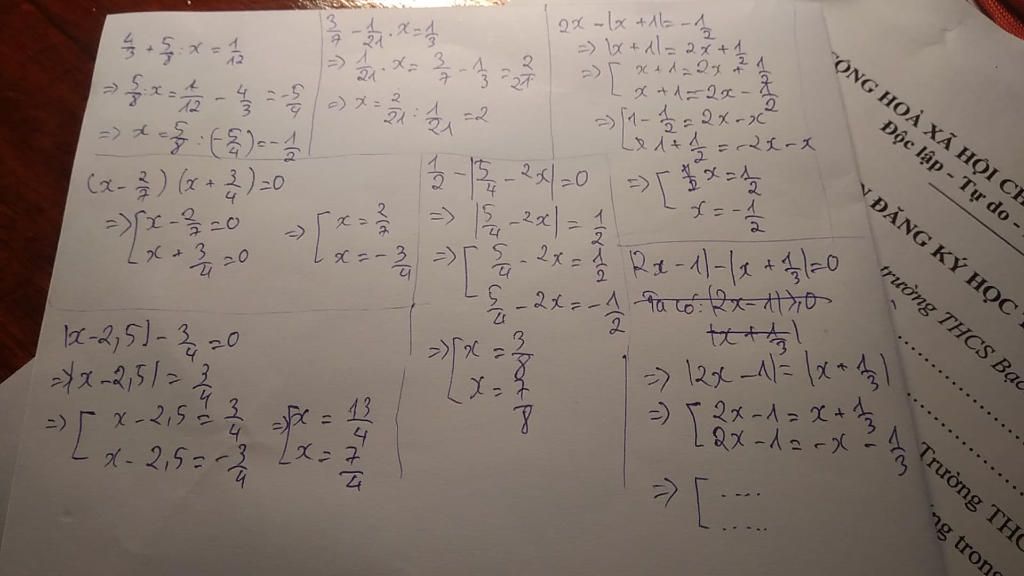 4/3 + 5/8 · x = 1/12
=> 5/8 · x = 1/12 - 4/3 = -5/4
=> x = 5/8 : (-5/4) = -1/2
3/7 - 1/21 · x = 1/3
=> 1/21 · x = 3/7 - 1/3 = 2/21
=> x = 2/21 : 1/21 = 2
2x - |x + 1| = -1/2
=> |x + 1| = 2x + 1/2
=> [ x + 1 = 2x + 1/2
x + 1 = 2x - 1/2
=> [ 1 - 1/2 = 2x - x
1 + 1/2 = -2x - x
=> [ x = 1/2
x = -1/2
(x - 2/7) (x + 3/4) = 0
=> [ x - 2/7 = 0 => [ x = 2/7
x + 3/4 = 0 x = -3/4
1/2 - |5/4 - 2x| = 0
=> |5/4 - 2x| = 1/2
=> [ 5/4 - 2x = 1/2
5/4 - 2x = -1/2
=> [ x = 3/8
x = 7/8
|2x - 1| - |x + 1/3| = 0
Ta có: |2x - 1| ≥ 0
|x + 1/3|
=> |2x - 1| = |x + 1/3|
=> [ 2x - 1 = x + 1/3
2x - 1 = -x - 1/3
=> [ ....
.....
|x - 2,5| - 3/4 = 0
=> |x - 2,5| = 3/4
=> [ x - 2,5 = 3/4 => [ x = 13/4
x - 2,5 = -3/4 x = 7/4
CỘNG HOÀ XÃ HỘI
Độc lập - Tự do -
ĐĂNG KÝ HỌC
trường THCS
Trường
trong